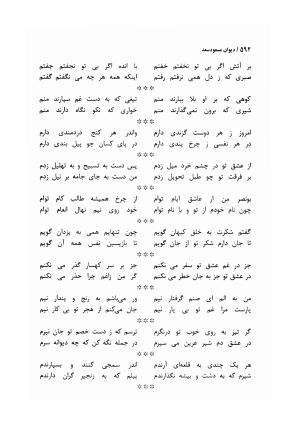 ۵۹۲ / دیوان مسعودسعد
بر آتش اگر بی تو نخفتم خفتم با انده اگر بی تو نجفتم جفتم
صبری که ز دل همی نرفتم رفتم اینکه همه هر چه می نگفتم گفتم
***
کوهی که بر او بلا ببارند منم تیغی که به دست غم سپارند منم
شیری که برون نمی‌گذارند منم خواری که نکو نگاه دارند منم
***
امروز ز هر دوست گزندی دارم واندر هر کنج دردمندی دارم
در هر نفسی ز چرخ پندی دارم در پای کسان چو پیل بندی دارم
***
از عشق تو در چشم خرد میل زدم پس دست به تسبیح و به تهلیل زدم
بر فرقت تو چو طبل تحویل زدم من دست به جای جامه بر نیل زدم
***
بونصر من از عاشق ایام توام از چرخ همیشه طالب کام توام
چون نام خودم از تو و با نام توام خود روی نیم نهال انعام توام
***
گفتم شکرت به خلق کیهان گویم چون تنهایم همی به یزدان گویم
تا جان دارم شکر تو از جان گویم تا بازپسین نفس همه آن گویم
***
جز در غم عشق تو سفر می نکنم جز بر سر کهسار گذر می نکنم
در عشق تو جز به جان خطر می نکنم گر من زاغم چرا حذر می نکنم
***
من به الم ای صنم گرفتار نیم ور می‌باشم به رنج و پندار نیم
پارست مرا غم تو بی یار نیم چون می‌کنم از هجر تو بی کار نیم
***
گر تیز به روی خوب تو درنگرم ترسم که ز دست خصم تو جان نبرم
در عشق دم شیر عرین می سپرم در جمله نگه کن که چه دیوانه سرم
***
هر یک چندی به قلعه‌ای آرندم اندر سمجی کنند و بسپارندم
شیرم که به دشت و بیشه نگذارندم پیلم که به زنجیر گران دارندم
***